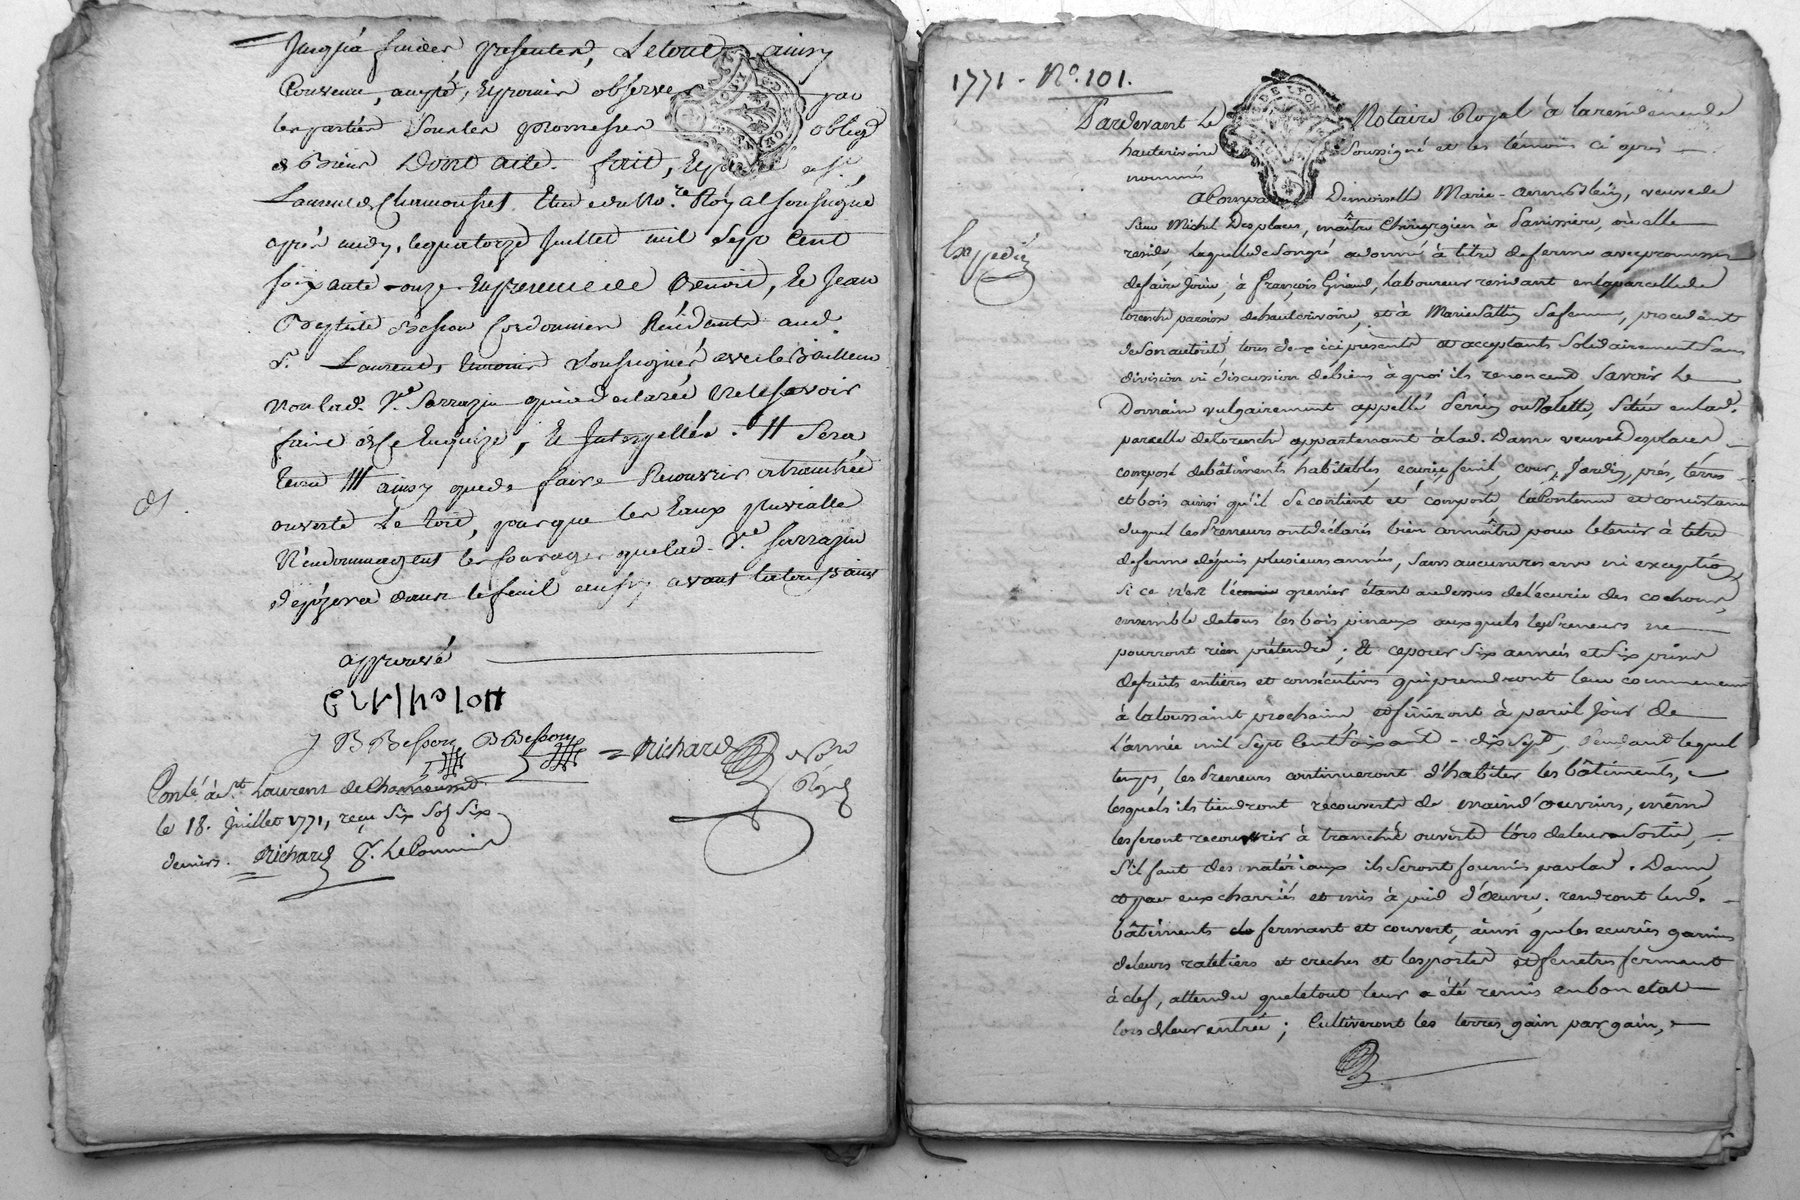 Jusqu'a fin des presentes, Le tout ainsy
Convenu, accepté, Et promis observer par
les parties sous les promesses oblig.
& Biens Dont acte. fait, Et passé a St.
Laurent de Chamousset Etude du No.re Royal soussigné
après midy, le quatorze Juillet mil Sept Cent
soixante-onze En presence de Benoit, Et Jean
Baptiste Besson Cordonnier Résidents aud.
St. Laurent, temoins soussignés avec le Bailleur
non lad. Ve. Sarrazin qui a declaré ne le savoir
faire de ce Enquize, Et Interpellée. # Sera
tenu # ainsy que de faire Recouvrir a tranchée
ouverte Le toit, pour que les Eaux pluvialle
N'endommagent les fourages que lad. Ve. Sarrazin
déposera dans le feuil avant la toussaint
approuvé
J B Besson B Besson Richard No.re
Royal
Conlé à St. Laurent de Chamousset
le 18. Juillet 1771, reçu Six Sols Six
deniers. Richard
1771 - No. 101.
Pardevant Le Notaire Royal à la residence de
hauterivoire Soussigné et les témoins ci après
nommés
Expedié
a Comparu Demoiselle Marie veuve de
Sieur Michel Desplaces, maître Chirurgien à Panissiere, où elle
reside, laquelle de son gré a donné à titre de ferme avec promesse
de faire Jouir, à François Giraud, laboureur residant en la parcelle de
paroisse de hauterivoire, et à Marie sa femme, procedant
de son autorité, tous deux ici presents et acceptants Solidairement Sans
division ni discussion de biens à quoi ils renoncent, Savoir Le
Domaine vulgairement appellé Perrin ou Valette, Situé en lad.
parcelle de appartenant à lad. Dame veuve Desplaces
composé de bâtiments habitables, ecurie, fenil, cour, Jardin, prés, terres
et bois ainsi qu'il Se contient et comporte, la Contenue et consistance
duquel les Preneurs ont déclarés bien connoître pour le tenir à titre
de ferme dépuis plusieurs années, Sans aucune reserve ni exception,
Si ce n'est grenier étant au dessus de l'écurie des cochons,
ensemble de tous les bois pinaux auxquels les Preneurs ne
pourront rien prétendre; Et ce pour Six années et Six prises
de fruits entieres et consécutives qui prendront leur commencement
à la toussaint prochaine, et finiront à pareil Jour de
l'année mil Sept Cent Soixante-dix Sept, Pendant lequel
temps, les Preneurs continueront d'habiter les bâtiments,
lesquels ils tiendront recouverts de main d'ouvriers, même
les feront recouvrir à tranchée ouverte lors de leur Sortie,
S'il faut des matériaux ils Seront fournis par lad. Dame,
et par eux charriés et mis à pied d'œuvre, rendront lesd.
bâtiments fermant et couvert, ainsi que les ecuries garnies
de leurs rateliers et creches et les portes et fenetres fermant
à clef, attendu que le tout leur a été remis en bon etat
lors de leur entrée; Cultiveront les terres gain par gain,